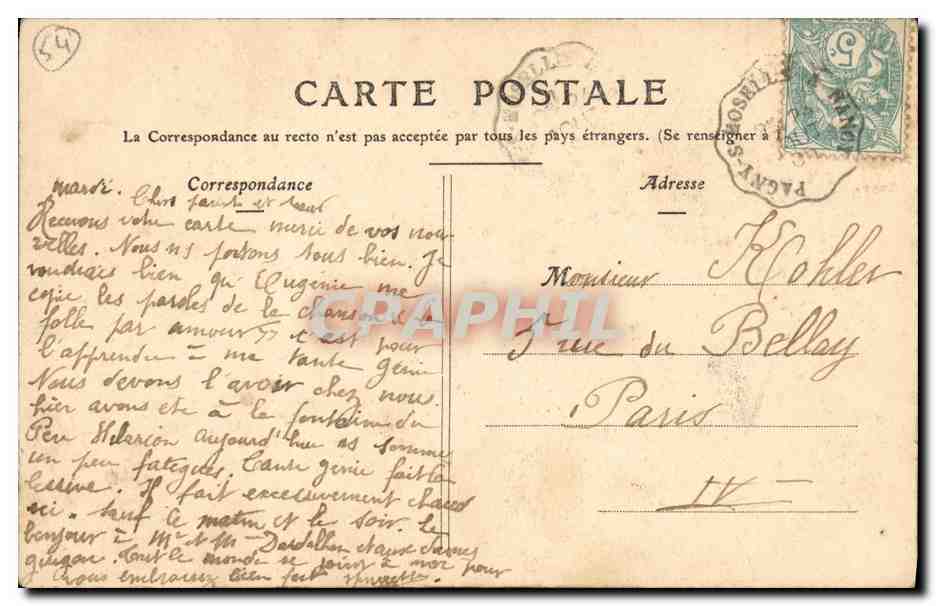 54
CARTE POSTALE
La Correspondance au recto n'est pas acceptée par tous les pays étrangers. (Se renseigner à la
Correspondance
Adresse
5
PAGNY-S-MOSELLE A NANCY
mardi. Chers parents et sœur
Recevons votre carte merci de vos nou-
velles. Nous ns portons tous bien. Je
voudrais bien qu'Eugénie me
copie les paroles de la chanson « la
folle par amour » c'est pour
l'apprendre à ma tante Génie
Nous devons l'avoir chez nous.
hier avons été à la fontaine du
Père Hilarion aujourd'hui ns somme
un peu fatigués. Tante génie fait la
lessive. Il fait excessivement chaud
ici. sauf le matin et le soir. Le
bonjour à Mr et Mme et aux
tout le monde se joint à moi pour
vous embrasser bien fort
Monsieur Kohler
5 rue du Bellay
Paris
IVe
CPAPHIL